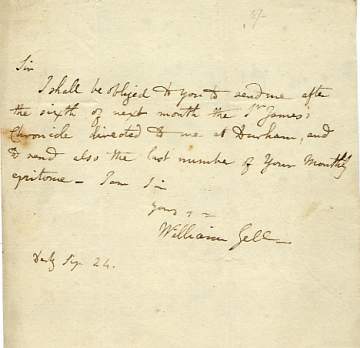 5/-
Sir
I shall be obliged to you to send me after
the sixth of next month the St James's
Chronicle directed to me at Durham, and
to send also the last number of Your Monthly
epitome – I am Sir
yours
William Gell –
Sep. 24.